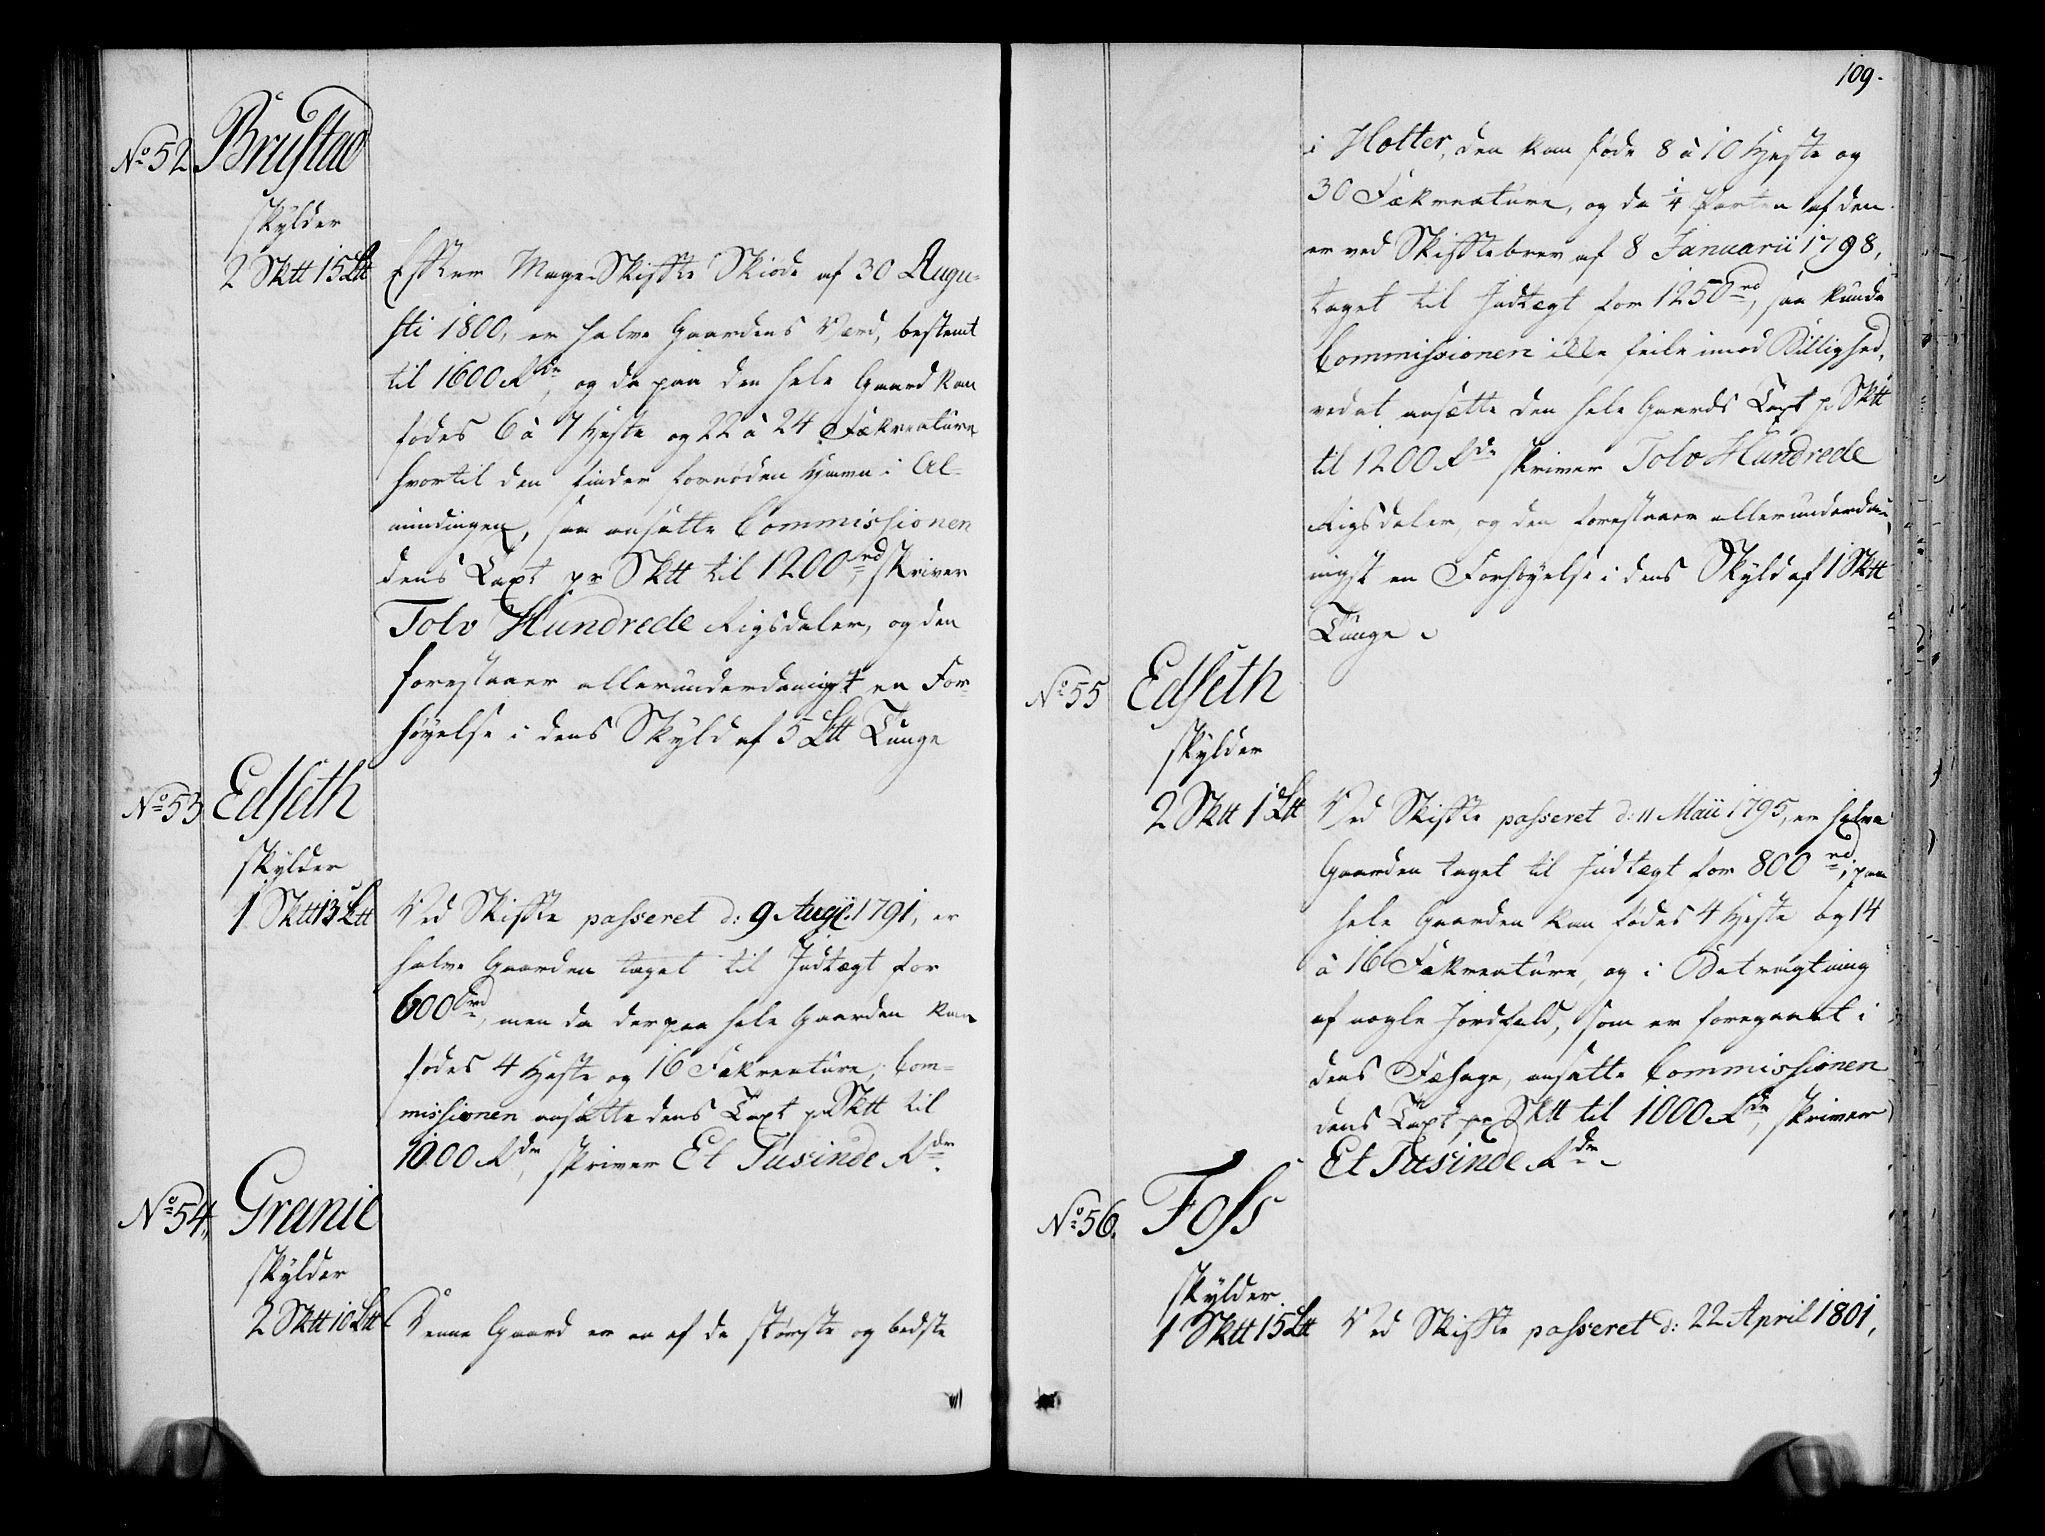 No 52. Brustad
skylder
2 Sktt 15 Ltt
Efter Mage-Skiffte Skiøde af 30 Augu-
sti 1800, er halve Gaardens Værd, bestemt
til 1600 Rdr, og da paa den hele Gaard kan
fødes 6 à 7 Heste og 22 à 24 Fækreature
hvortil den finder fornøden Havn i Al-
mindingen, saa ansatte Commissionen
dens Taxt pr Sktt til 1200 rd, skriver
Tolv Hundrede Rigsdaler, og den
forestaaer allerunderdanigst en For-
høyelse i dens Skyld af 5 Ltt Tunge
No 53 Edseth
skylder
1 Sktt 13 Ltt
Ved Skiffte passeret d: 9 Aug: 1791, er
halve Gaarden taget til Indtægt for
600 rd, men da derpaa hele Gaarden kan
fødes 4 Heste og 16 Fækreature, Com-
missionen ansatte dens Taxt pr Sktt til
1000 Rdr, skriver Et Tusinde Rdr.
No 54. Granie
skylder
2 Sktt 10 Ltt
Denne Gaard er en af de største og bedste
109.
i Holter, den kan føde 8 à 10 Heste og
30 Fækreature, og da 1/4 Parten af den
er ved Skifftebrev af 8 Januarii 1798,
taget til Indtægt for 1250 rd, saa kunde
Commissionen ikke feile imod Billighed,
ved at ansætte den hele Gaards Taxt pr Sktt
til 1200 Rdr skriver Tolv Hundrede
Rigsdaler, og den forestaaer allerunderda-
nigst en Forhøyelse i dens Skyld af 1 Sktt
Tunge
No 55 Edseth
skylder
2 Sktt 1 Ltt
Ved Skiffte passeret d: 11 Maii 1795, er halve
Gaarden taget til Indtægt for 800 rd, paa
hele Gaarden kan fødes 4 Heste og 14
à 16 Fækreature, og i Betragtning
af nogle Jordfald, som er foregaaet i
dens Fæhage, ansatte Commissionen
dens Taxt pr Sktt til 1000 Rdr, skriver
Et Tusinde Rdr
No 56. Foss
skylder
1 Sktt 15 Ltt
Ved Skiffte passeret d: 22 April 1801,